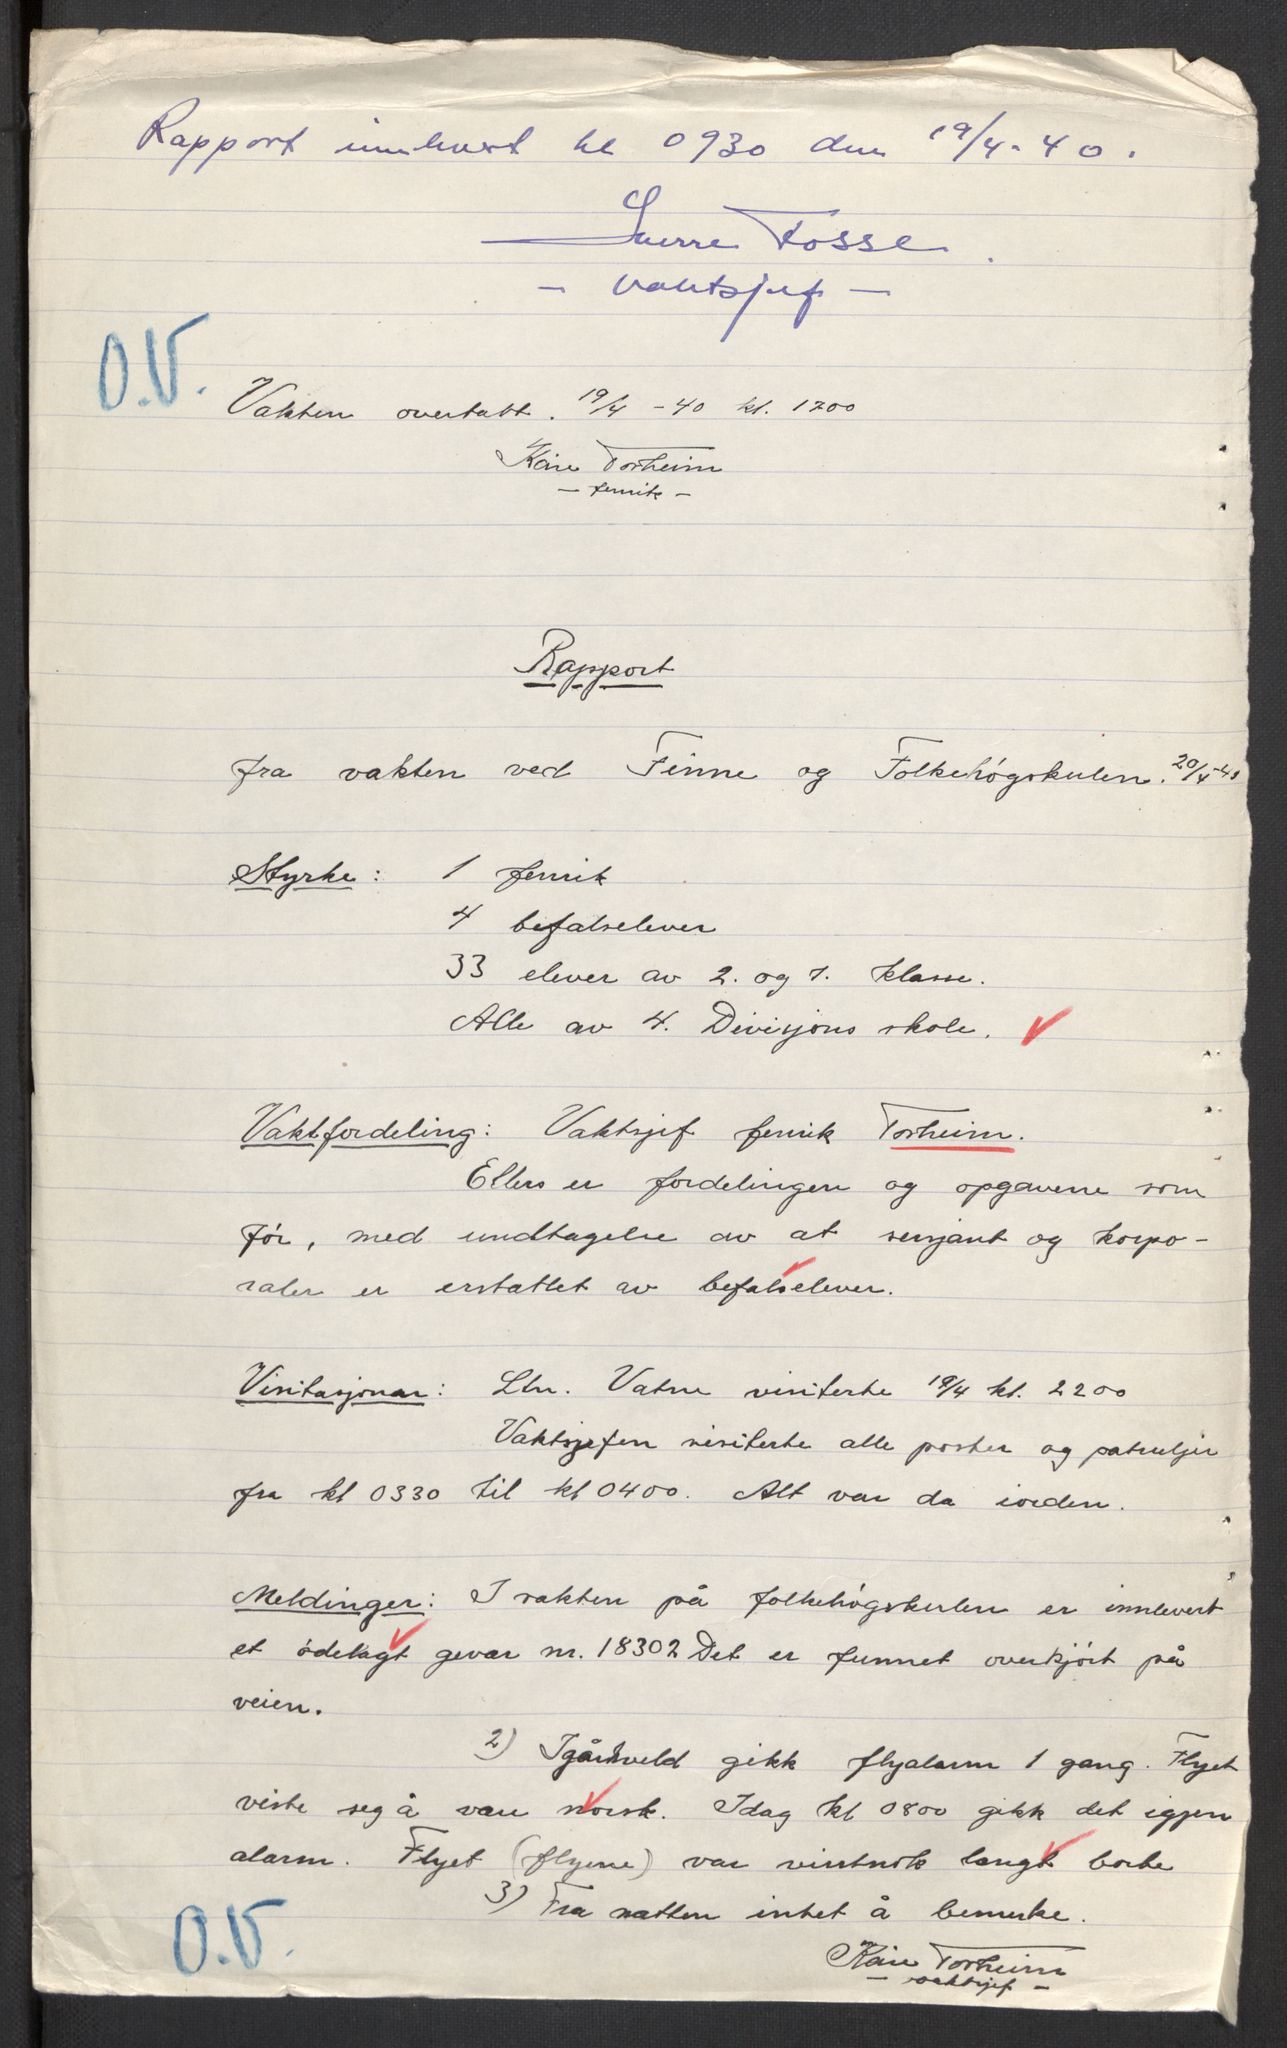 Rapport innlevert kl 0930 den 19/4-40.
Sverre Fosse.
- Vaktsjef -
O.V.
Vakten overtatt. 19/4 -40 kl. 1200
Kåre Torheim
- fenrik -
Rapport
fra vakten ved Finne og Folkehøgskulen. 20/4-40
Styrke: 1 fenrik
4 befalselever
33 elever av 2. og 1. klasse.
Alle av 4. Divisjons skole.
Vaktfordeling: Vaktsjef fenrik Torheim.
Ellers er fordelingen og opgavene som
før, med undtagelse av at sersjant og korpo-
raler er erstattet av befalselever.
Visitasjonar: Ltn. Vatne visiterte 19/4 kl. 2200
Vaktsjefen visiterte alle poster og patruljer
fra kl 0330 til kl 0400. Alt var da iorden.
Meldinger: I vakten på folkehøgskulen er innlevert
et ødelagt gevær nr. 18302 Det er funnet overkjørt på
veien.
2) Igårkveld gikk flyalarm 1 gang. Flyet
viste seg å være norsk. Idag kl 0800 gikk det igjen
alarm. Flyet (flyene) var visstnok langt borte
3) Fra natten intet å bemerke.
O.V.
Kåre Torheim
- vaktsjef -